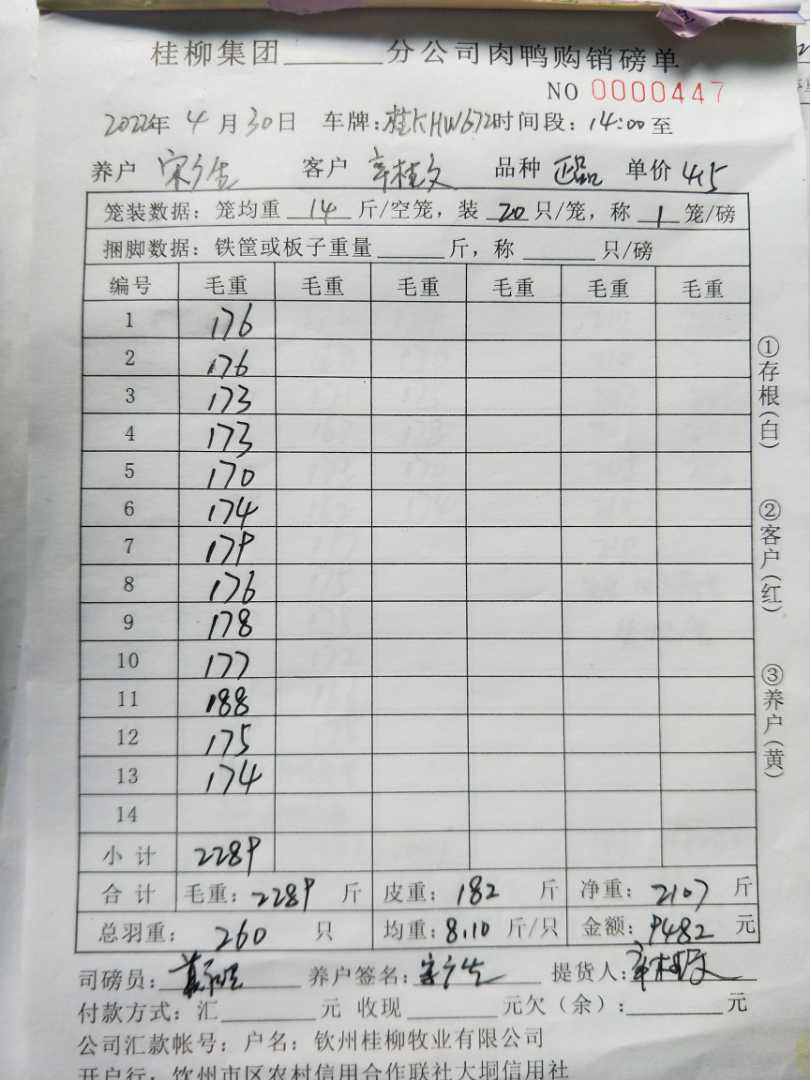 桂柳集团______分公司肉鸭购销磅单
NO 0000447
2022年 4 月 30 日 车牌:桂KHW672时间段:14:00至
养户 宋广生 客户 辛桂文 品种 正品 单价 4.5
笼装数据:笼均重 14 斤/空笼,装 20 只/笼,称 1 笼/磅
捆脚数据:铁筐或板子重量______斤,称______只/磅
编号 毛重 毛重 毛重 毛重 毛重 毛重
1 176
2 176
3 173
4 173
5 170
6 174
7 179
8 176
9 178
10 177
11 188
12 175
13 174
14
小计 2289
合计 毛重:2289 斤 皮重:182 斤 净重:2107 斤
总羽重:260 只 均重:8.10 斤/只 金额:9482 元
①存根(白)
②客户(红)
③养户(黄)
司磅员: 养户签名:宋广生 提货人:辛桂文
付款方式:汇______元 收现______元欠(余):______元
公司汇款帐号:户名:钦州桂柳牧业有限公司
开户行:钦州市区农村信用合作联社大垌信用社